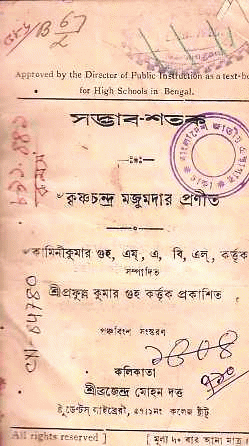 B 67/2
Approved by the Director of Public Instruction as a text-bo
for High Schools in Bengal.
সদ্ভাব-শতক
কৃষ্ণচন্দ্র মজুমদার প্রণীত
কামিনীকুমার গুহ, এম্, এ, বি, এল্, কর্ত্তৃক
সম্পাদিত
শ্রীপ্রফুল্ল কুমার গুহ কর্ত্তৃক প্রকাশিত
পঞ্চবিংশ সংস্করণ
কলিকাতা
শ্রীব্রজেন্দ্র মোহন দত্ত
ষ্টুডেণ্টস্ লাইব্রেরী, ৫৭।১নং কলেজ ষ্ট্রীট
All rights reserved ]
[ মূল্য ৸০ বার আনা মাত্র